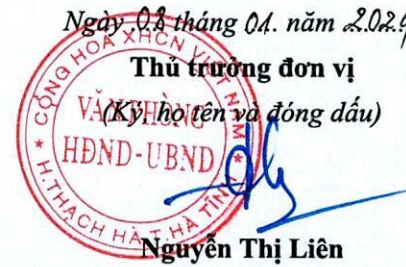 Ngày 08 tháng 01. năm 2024
Thủ trưởng đơn vị
(Ký, họ tên và đóng dấu)
CỘNG HOÀ XHCN VIỆT NAM
VĂN PHÒNG
HĐND-UBND
★ H.THẠCH HÀ T.HÀ TĨNH ★
Nguyễn Thị Liên